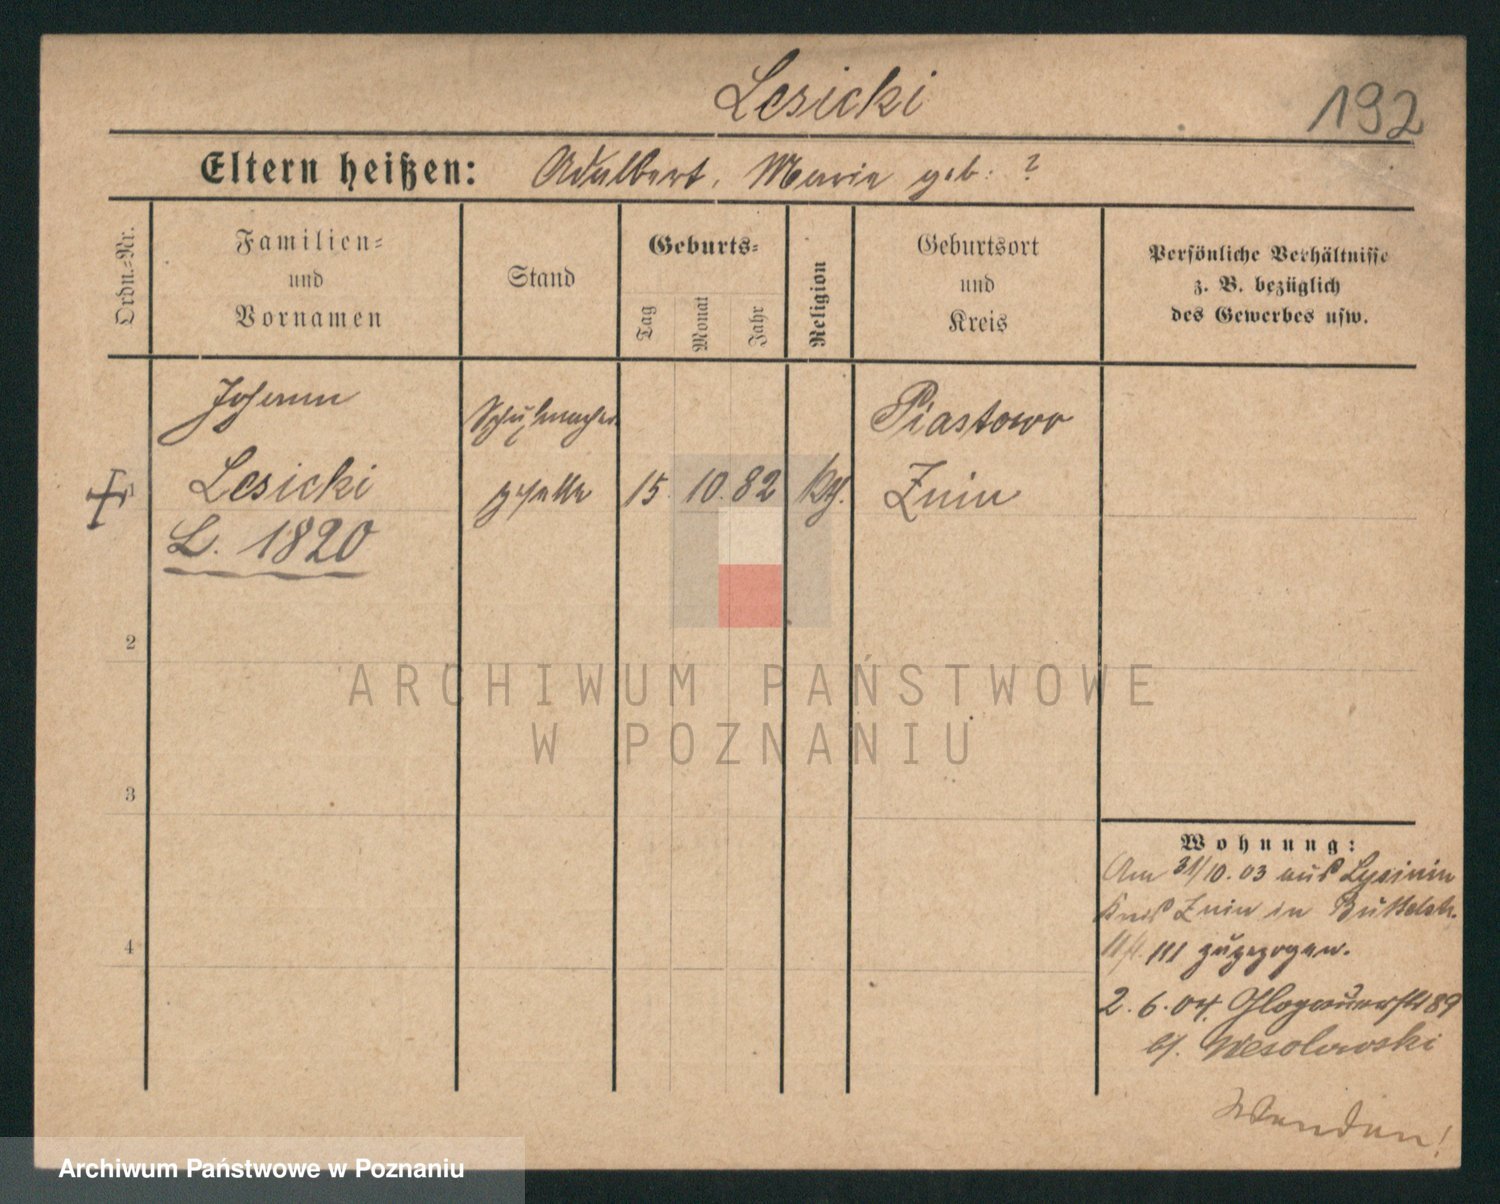 Lesicki
192
Eltern heißen: Adalbert, Marie geb. ?
Ordn.-Nr.
Familien-
und
Vornamen
Stand
Geburts-
Tag
Monat
Jahr
Religion
Geburtsort
und
Kreis
Persönliche Verhältnisse
z. B. bezüglich
des Gewerbes usw.
Johann
Schuhmacher
Piastowo
1
Lesicki
geselle
15. 10. 82
kth.
Znin
L. 1820
2
3
4
Wohnung:
Am 31/10. 03 aus Lysinin
Kreis Znin in
111 zugezogen.
2. 6. 04. Glogauerstr 89
b/. Wesolowski
Wenden!
ARCHIWUM PAŃSTWOWE
W POZNANIU
Archiwum Państwowe w Poznaniu